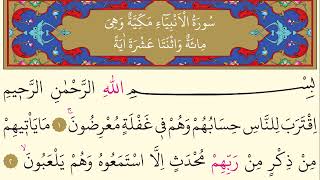 سُورَةُ الْاَنْبِيَاءِ مَكِّيَّةٌ وَهِيَ
مِائَةٌ وَاثْنَتَا عَشْرَةَ اٰيَةً
بِسْمِ اللّٰهِ الرَّحْمٰنِ الرَّحٖيمِ
اِقْتَرَبَ لِلنَّاسِ حِسَابُهُمْ وَهُمْ فٖى غَفْلَةٍ مُعْرِضُونَۚ ﴿١﴾ مَا يَاْتٖيهِمْ
مِنْ ذِكْرٍ مِنْ رَبِّهِمْ مُحْدَثٍ اِلَّا اسْتَمَعُوهُ وَهُمْ يَلْعَبُونَۙ ﴿٢﴾